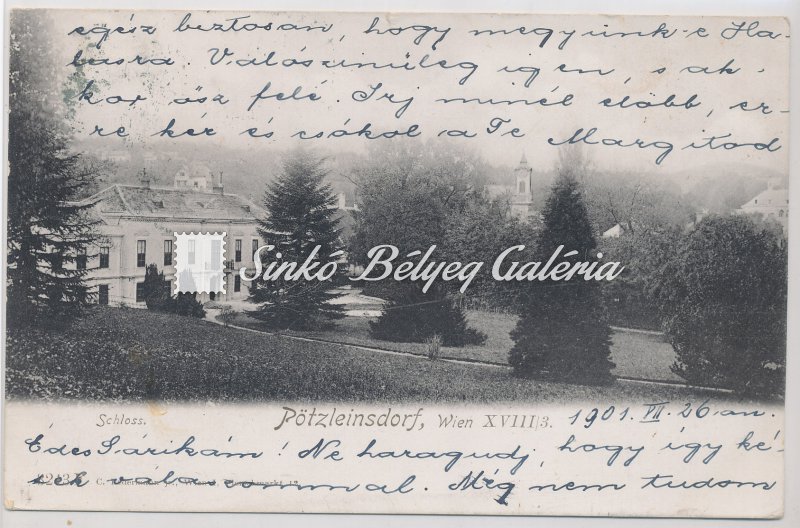 egész biztosan, hogy megyünk-e Ha-
busra. Valószinüleg igen, s ak-
kor ősz felé. Irj minél előbb, er-
re kér és csókol a Te Margitod
Sinkó Bélyeg Galéria
Schloss. Pötzleinsdorf, Wien XVIII/3. 1901. VII. 26-án.
Édes Sárikám! Ne haragudj, hogy így ké-
sek válaszommal. Még nem tudom